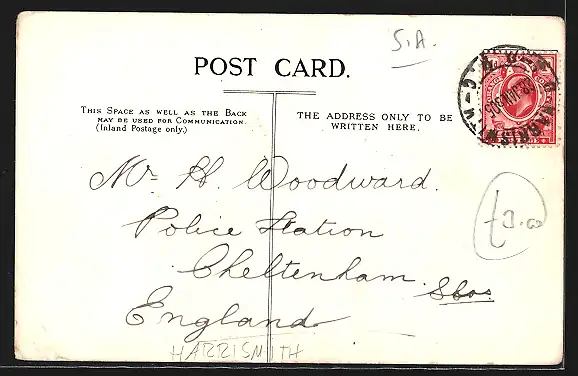 S.A.
POST CARD.
THIS SPACE AS WELL AS THE BACK
MAY BE USED FOR COMMUNICATION.
(Inland Postage only.)
THE ADDRESS ONLY TO BE
WRITTEN HERE.
Mr H. Woodward.
Police Station
Cheltenham.
England
£3.00
HARRISMITH